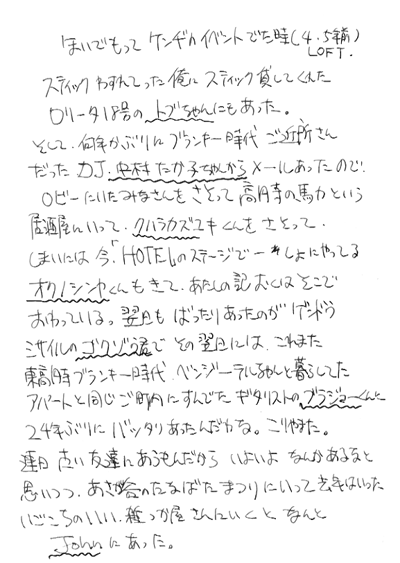 まいでもって ケンヂがイベントでた時(4.5年前)
LOFT.
スティック わすれてった俺に スティック貸してくれた
ロリータ18号の トブちゃんにもあった。
そして、何年かぶりに ブランキー時代 ご近所さん
だった DJ. 中村たか子ちゃんから メールあったので、
ロビーにいたみなさんを さそって 高円寺の馬力という
居酒屋にいって、クハラカズユキくんを さそって、
しまいには 今「HOTEL」のステージで いっしょにやってる
オクノシンヤくんもきて、あたしの記おくは そこで
おわっている。翌日も ばったりあったのが ゲンドウ
ミサイルの ゴクゾウ君で その翌日には、これまた
東高円寺 ブランキー時代、ベンジー テルちゃんと暮らしてた
アパートと同じ ご町内に すんでた ギタリストの ブラジョーくんに
24年ぶりに バッタリ あったんだかな。こりゃまた。
連日 古い友達に あうもんだから いよいよ なんかあるなと
思いつつ、あさがやの たなばたまつりに いって 去年もいった
いごこちのいい、雑っか屋さんにいくと なんと
Johnにあった。